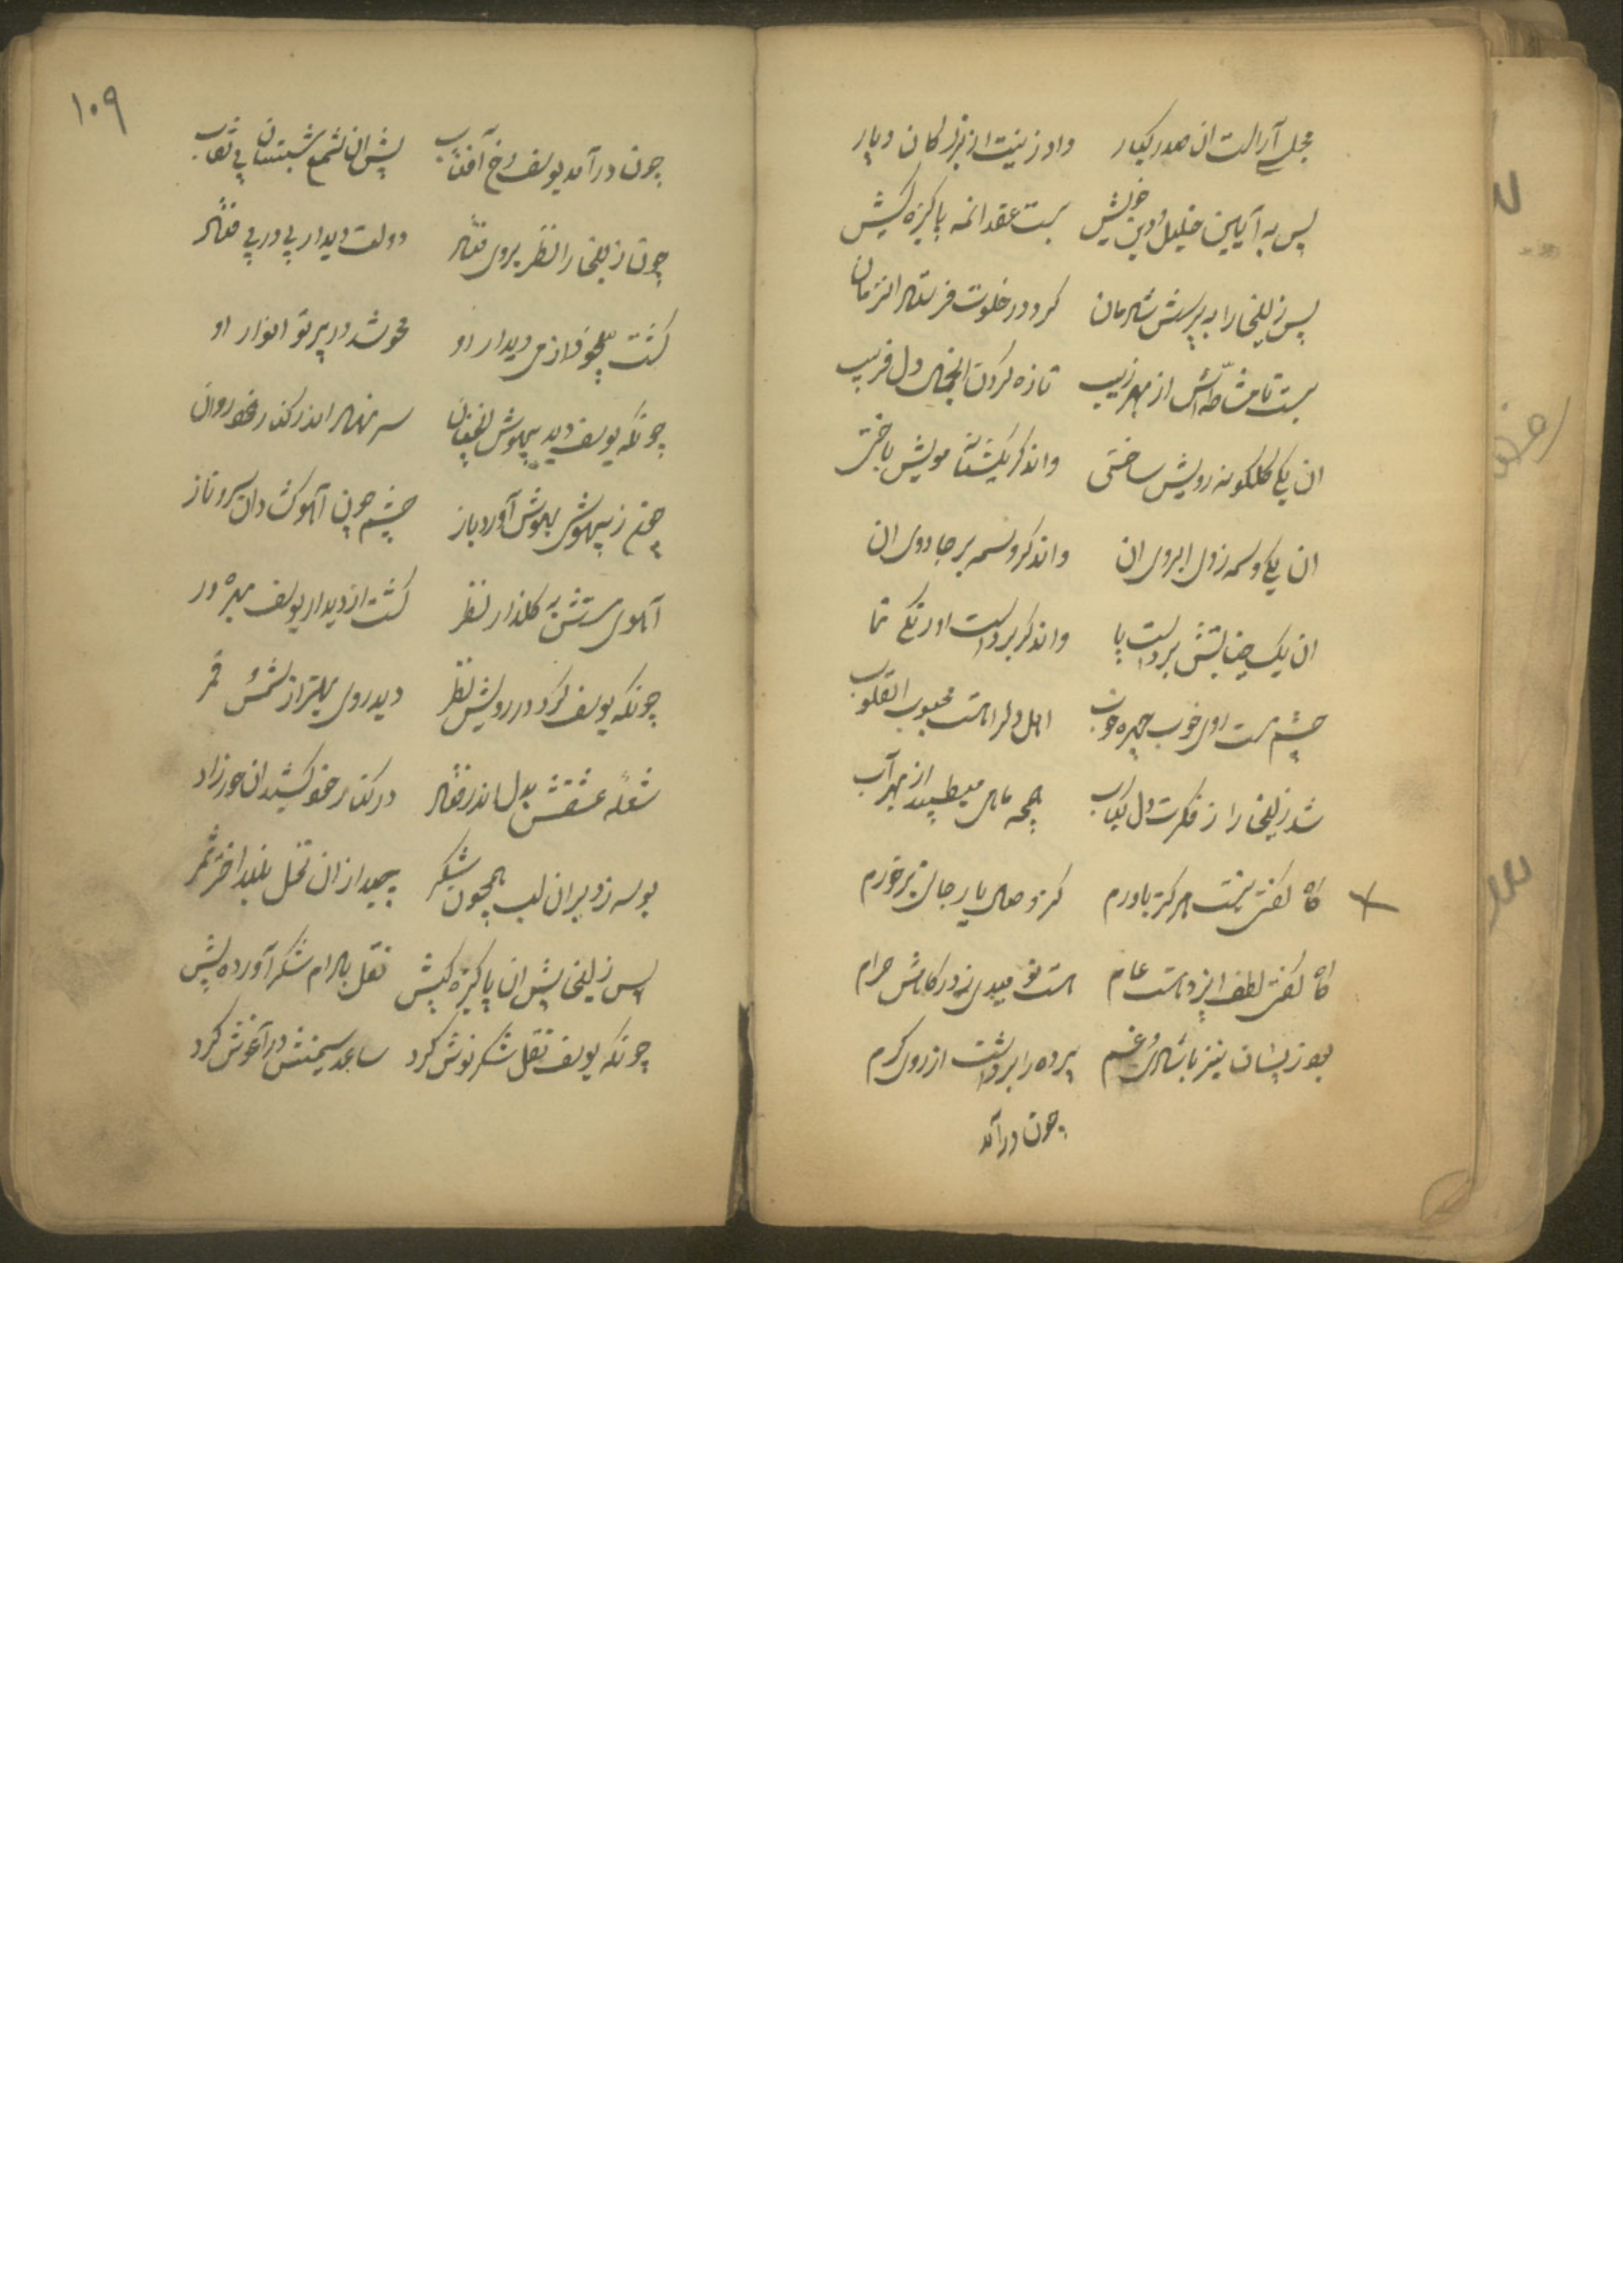 مجلس آراست ان صدر کبار داد زینت از بزرگان دیار
پس به آیین خلیل و دین خویش بست عقد انمه پاکیزه کیش
پس زلیخا را به پرسش شادمان کرد در خلوت فرستاد انزمان
بست تا مشاطه‌اش از بهر زیب تازه کردن انجمال دل فریب
ان یکی گلگونه رویش ساختی واندگر یکشانه مویش باختی
ان یکی وسمه زدی ابروی ان واندگر وسمه بر جادوی ان
ان یک حنا بستش بر دست پا واندگر بر دست او رنگ
چشم مست اوی خوب چهره خوب اهل دلرا هست محبوب القلوب
شد زلیخا را ز فکرت دل کباب همچه ماهی میطپید از بهر آب
گاه گفتی نیست هرگز باورم کز وصال یار جانی برخورم
گاه گفتی لطف ایزد هست عام هست نومیدی ز درگاهش حرام
بود زینسان نیز با شادی و غم پرده را برداشت از روی کرم
چون درآمد
۱۰۹
چون درآمد یوسف رخ آفتاب پیش ان شمع شبستان بی نقاب
چون زلیخا را نظر بروی فتاد دولت دیدار پی در پی فتاد
گشت بیخود از می دیدار او محو شد در پرتو انوار او
چونکه یوسف دید بیهوش انچنان سر نهاد اندر کنار خود روان
چون ز بیهوشی بهوش آورد باز چشم چون آهو گشاد ان سرو ناز
آهوی مستش به گلذار نظر گشت از دیدار یوسف بهره‌ور
چونکه یوسف کرد در رویش نظر دید روی بهتر از شمس و قمر
شعله عشقش بدل اندر فتاد در کنار خود کشید ان حورزاد
بوسه زد بر ان لب همچون شکر چید از ان نخل بلند اختر ثمر
پس زلیخا پیش ان پاکیزه کیش نقل بادام شکر آورده پیش
چونکه یوسف نقل شکر نوش کرد ساعد سیمینش در آغوش کرد